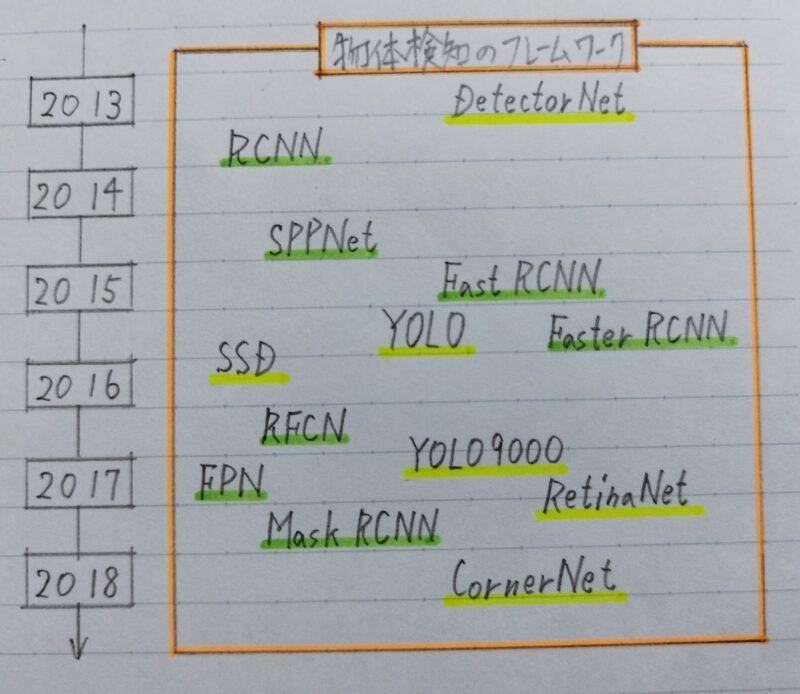 物体検知のフレームワーク
2013
DetectorNet
RCNN
2014
SPPNet
2015
Fast RCNN
YOLO
Faster RCNN
SSD
2016
RFCN
YOLO9000
2017
FPN
RetinaNet
Mask RCNN
2018
CornerNet